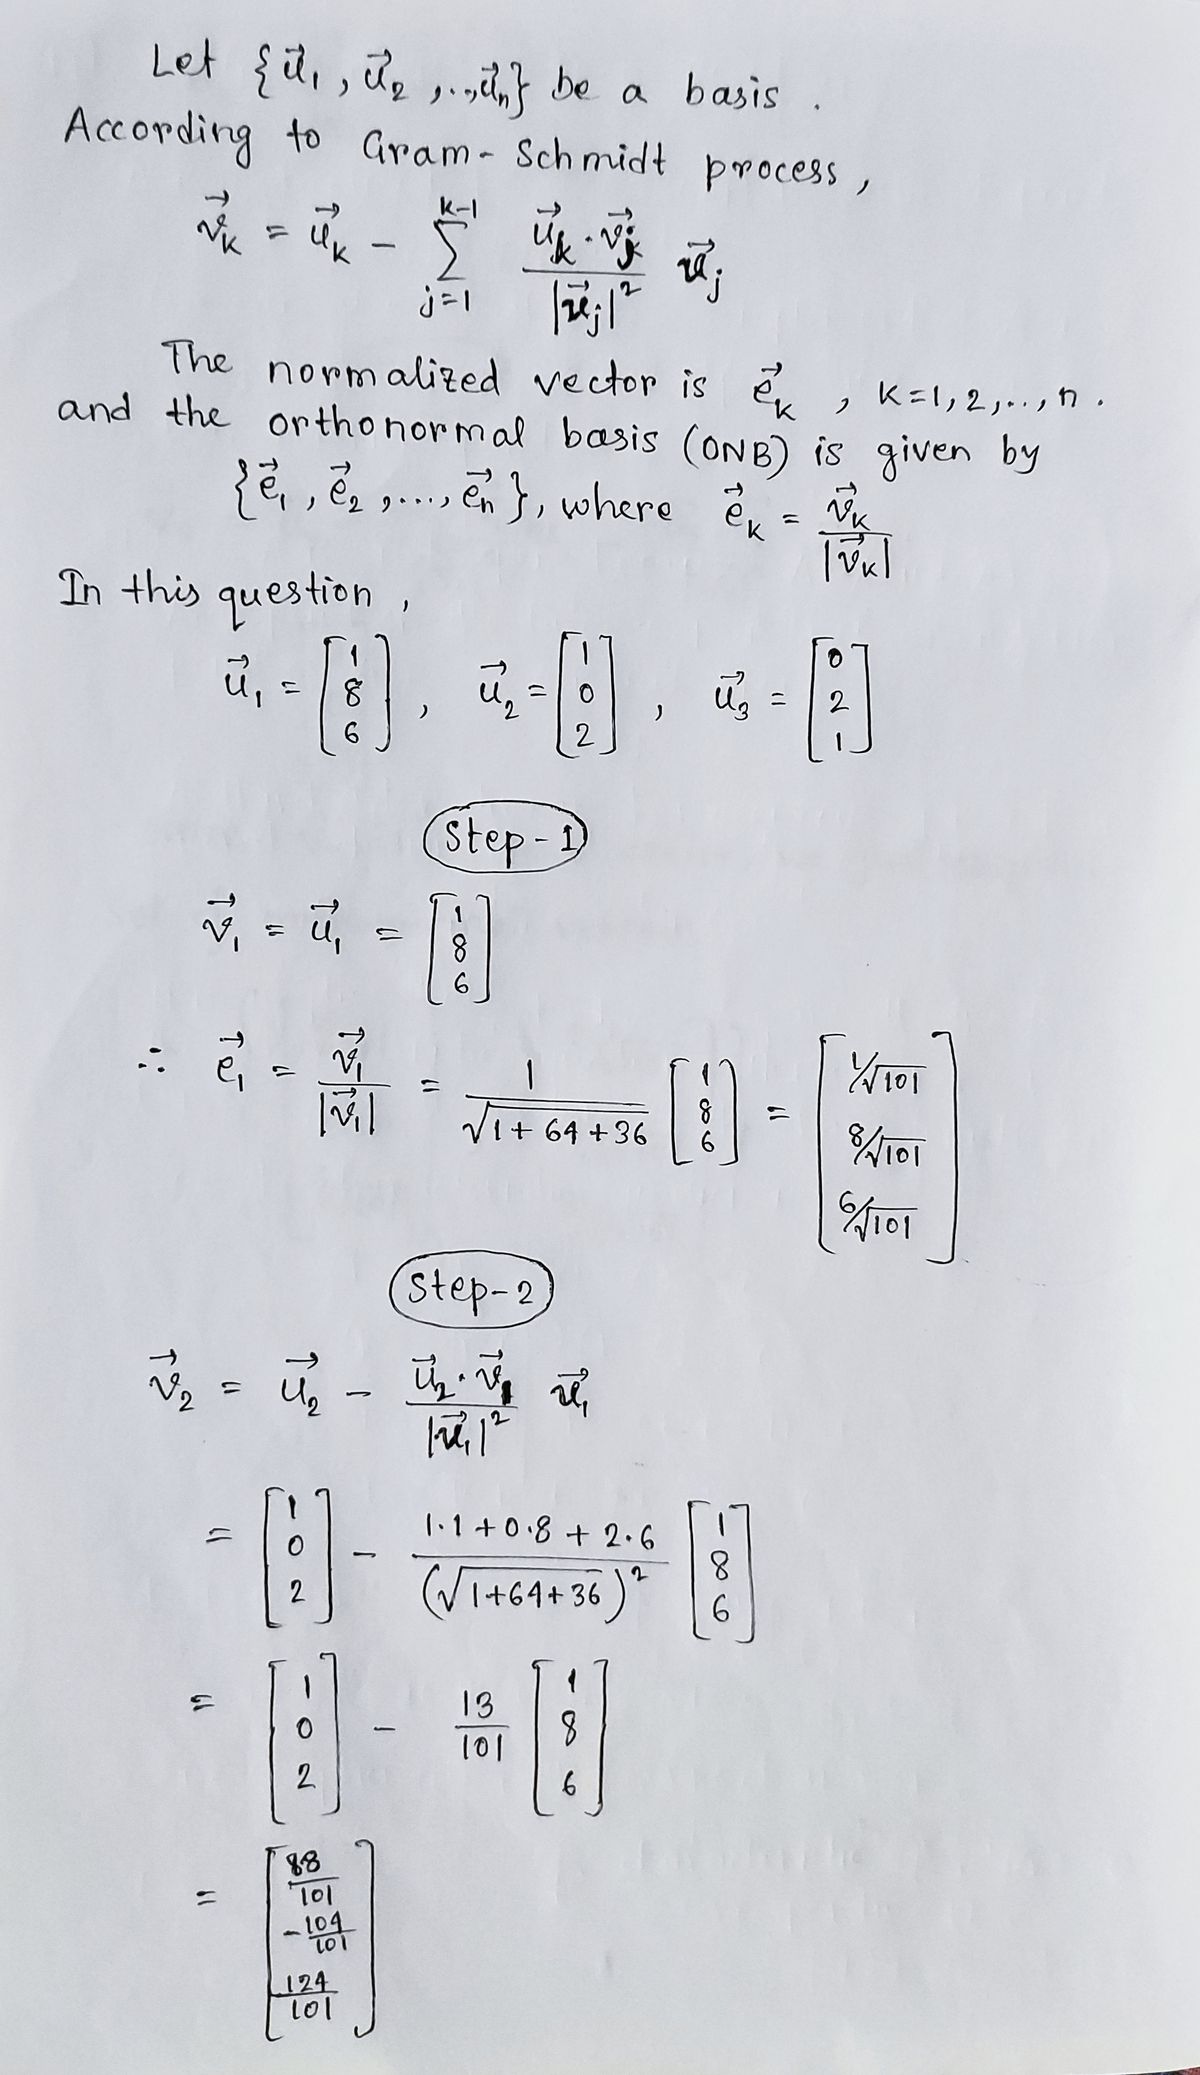 Let {u⃗₁, u⃗₂, ..., u⃗ₙ} be a basis.
According to Gram-Schmidt process,
v⃗ₖ = u⃗ₖ - Σ_{j=1}^{k-1} (u⃗ₖ · v⃗ⱼ)/|v⃗ⱼ|² v⃗ⱼ
The normalized vector is e⃗ₖ, k=1,2,...,n.
and the orthonormal basis (ONB) is given by
{e⃗₁, e⃗₂, ..., e⃗ₙ}, where e⃗ₖ = v⃗ₖ/|v⃗ₖ|
In this question,
u⃗₁ = [1 8 6], u⃗₂ = [1 0 2], u⃗₃ = [0 2 1]
Step-1
v⃗₁ = u⃗₁ = [1 8 6]
∴ e⃗₁ = v⃗₁/|v⃗₁| = 1/√(1+64+36) [1 8 6] = [1/√101 8/√101 6/√101]
Step-2
v⃗₂ = u⃗₂ - (u⃗₂ · v⃗₁)/|v⃗₁|² v⃗₁
= [1 0 2] - (1·1+0·8+2·6)/(√(1+64+36))² [1 8 6]
= [1 0 2] - 13/101 [1 8 6]
= [88/101 -104/101 124/101]